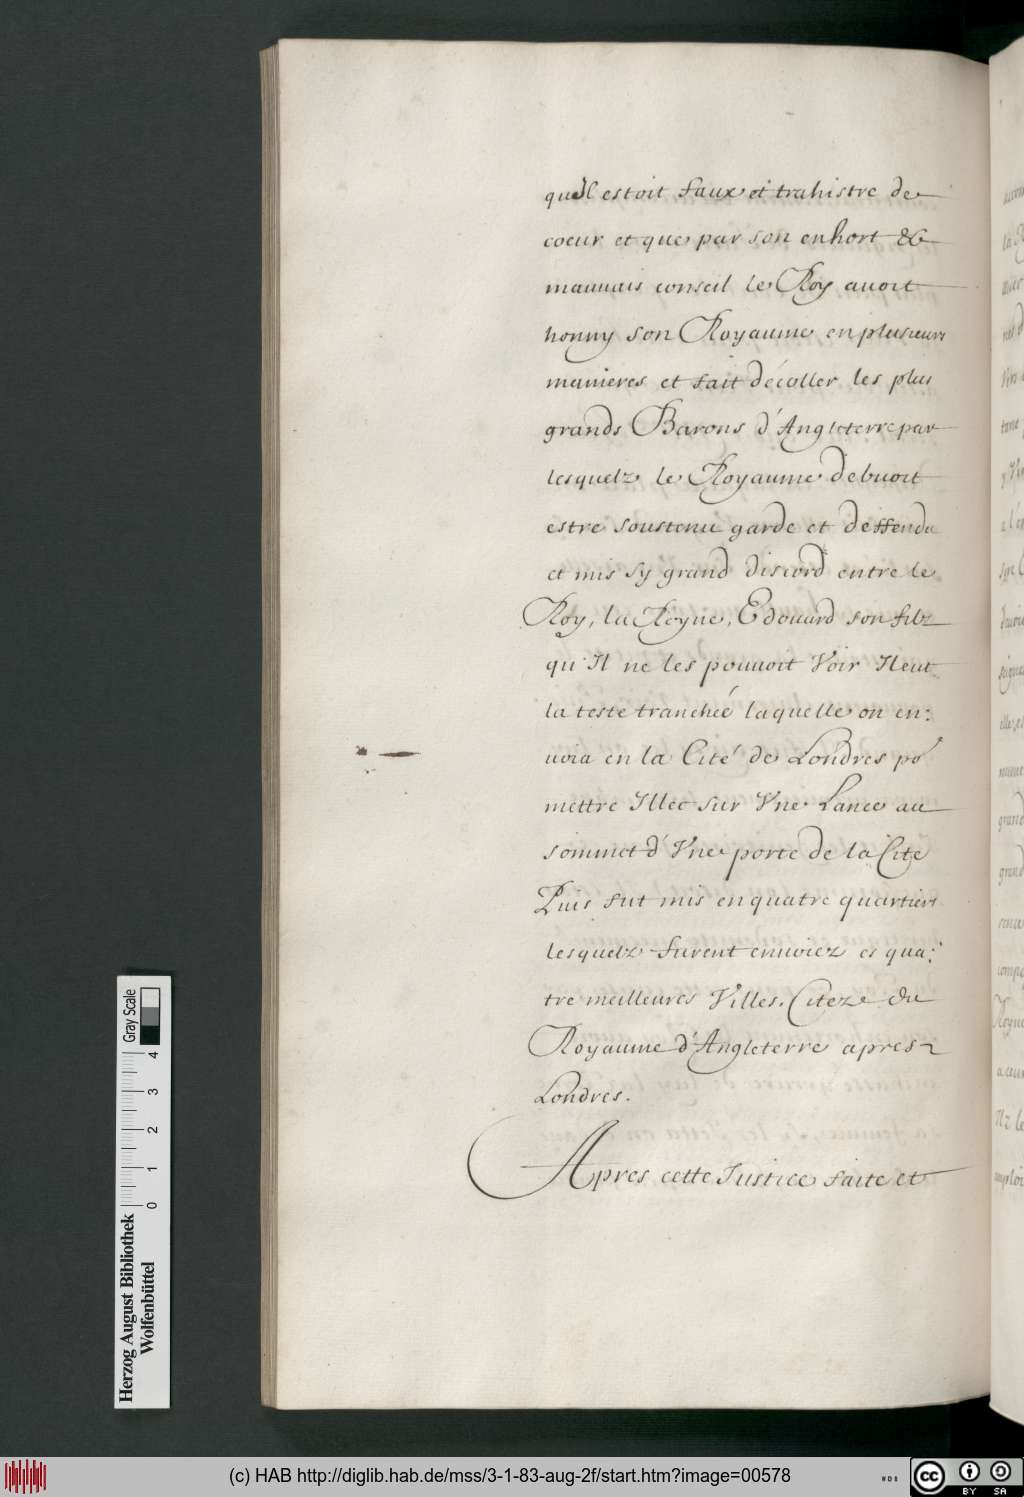 qu'Il estoit faux et trahistre de
coeur et que par son enhort &
mauuais conseil le Roy auoit
honny son Royaume en plusieurs
manieres et fait décoller les plus
grands Barons d'Angleterre par
lesquelz le Royaume debuoit
estre soustenu garde et deffendu
et mis sy grand discord entre le
Roy, la Royne, Edouard son filz
qu'Il ne les pouuoit Voir Il eut
la teste tranchée laquelle on en:
uoia en la Cité de Londres po.r
mettre Illec sur Vne Lance au
sommet d'Vne porte de la Cite
Puis fut mis en quatre quartiers
lesquelz furent enuoiez es qua:
tre meilleures Villes, Citeze du
Royaume d'Angleterre apres
Londres.
Apres cette Justice faite et
Gray Scale
0 1 2 3 4
Herzog August Bibliothek
Wolfenbüttel
(c) HAB http://diglib.hab.de/mss/3-1-83-aug-2f/start.htm?image=00578
WDB
CC BY SA